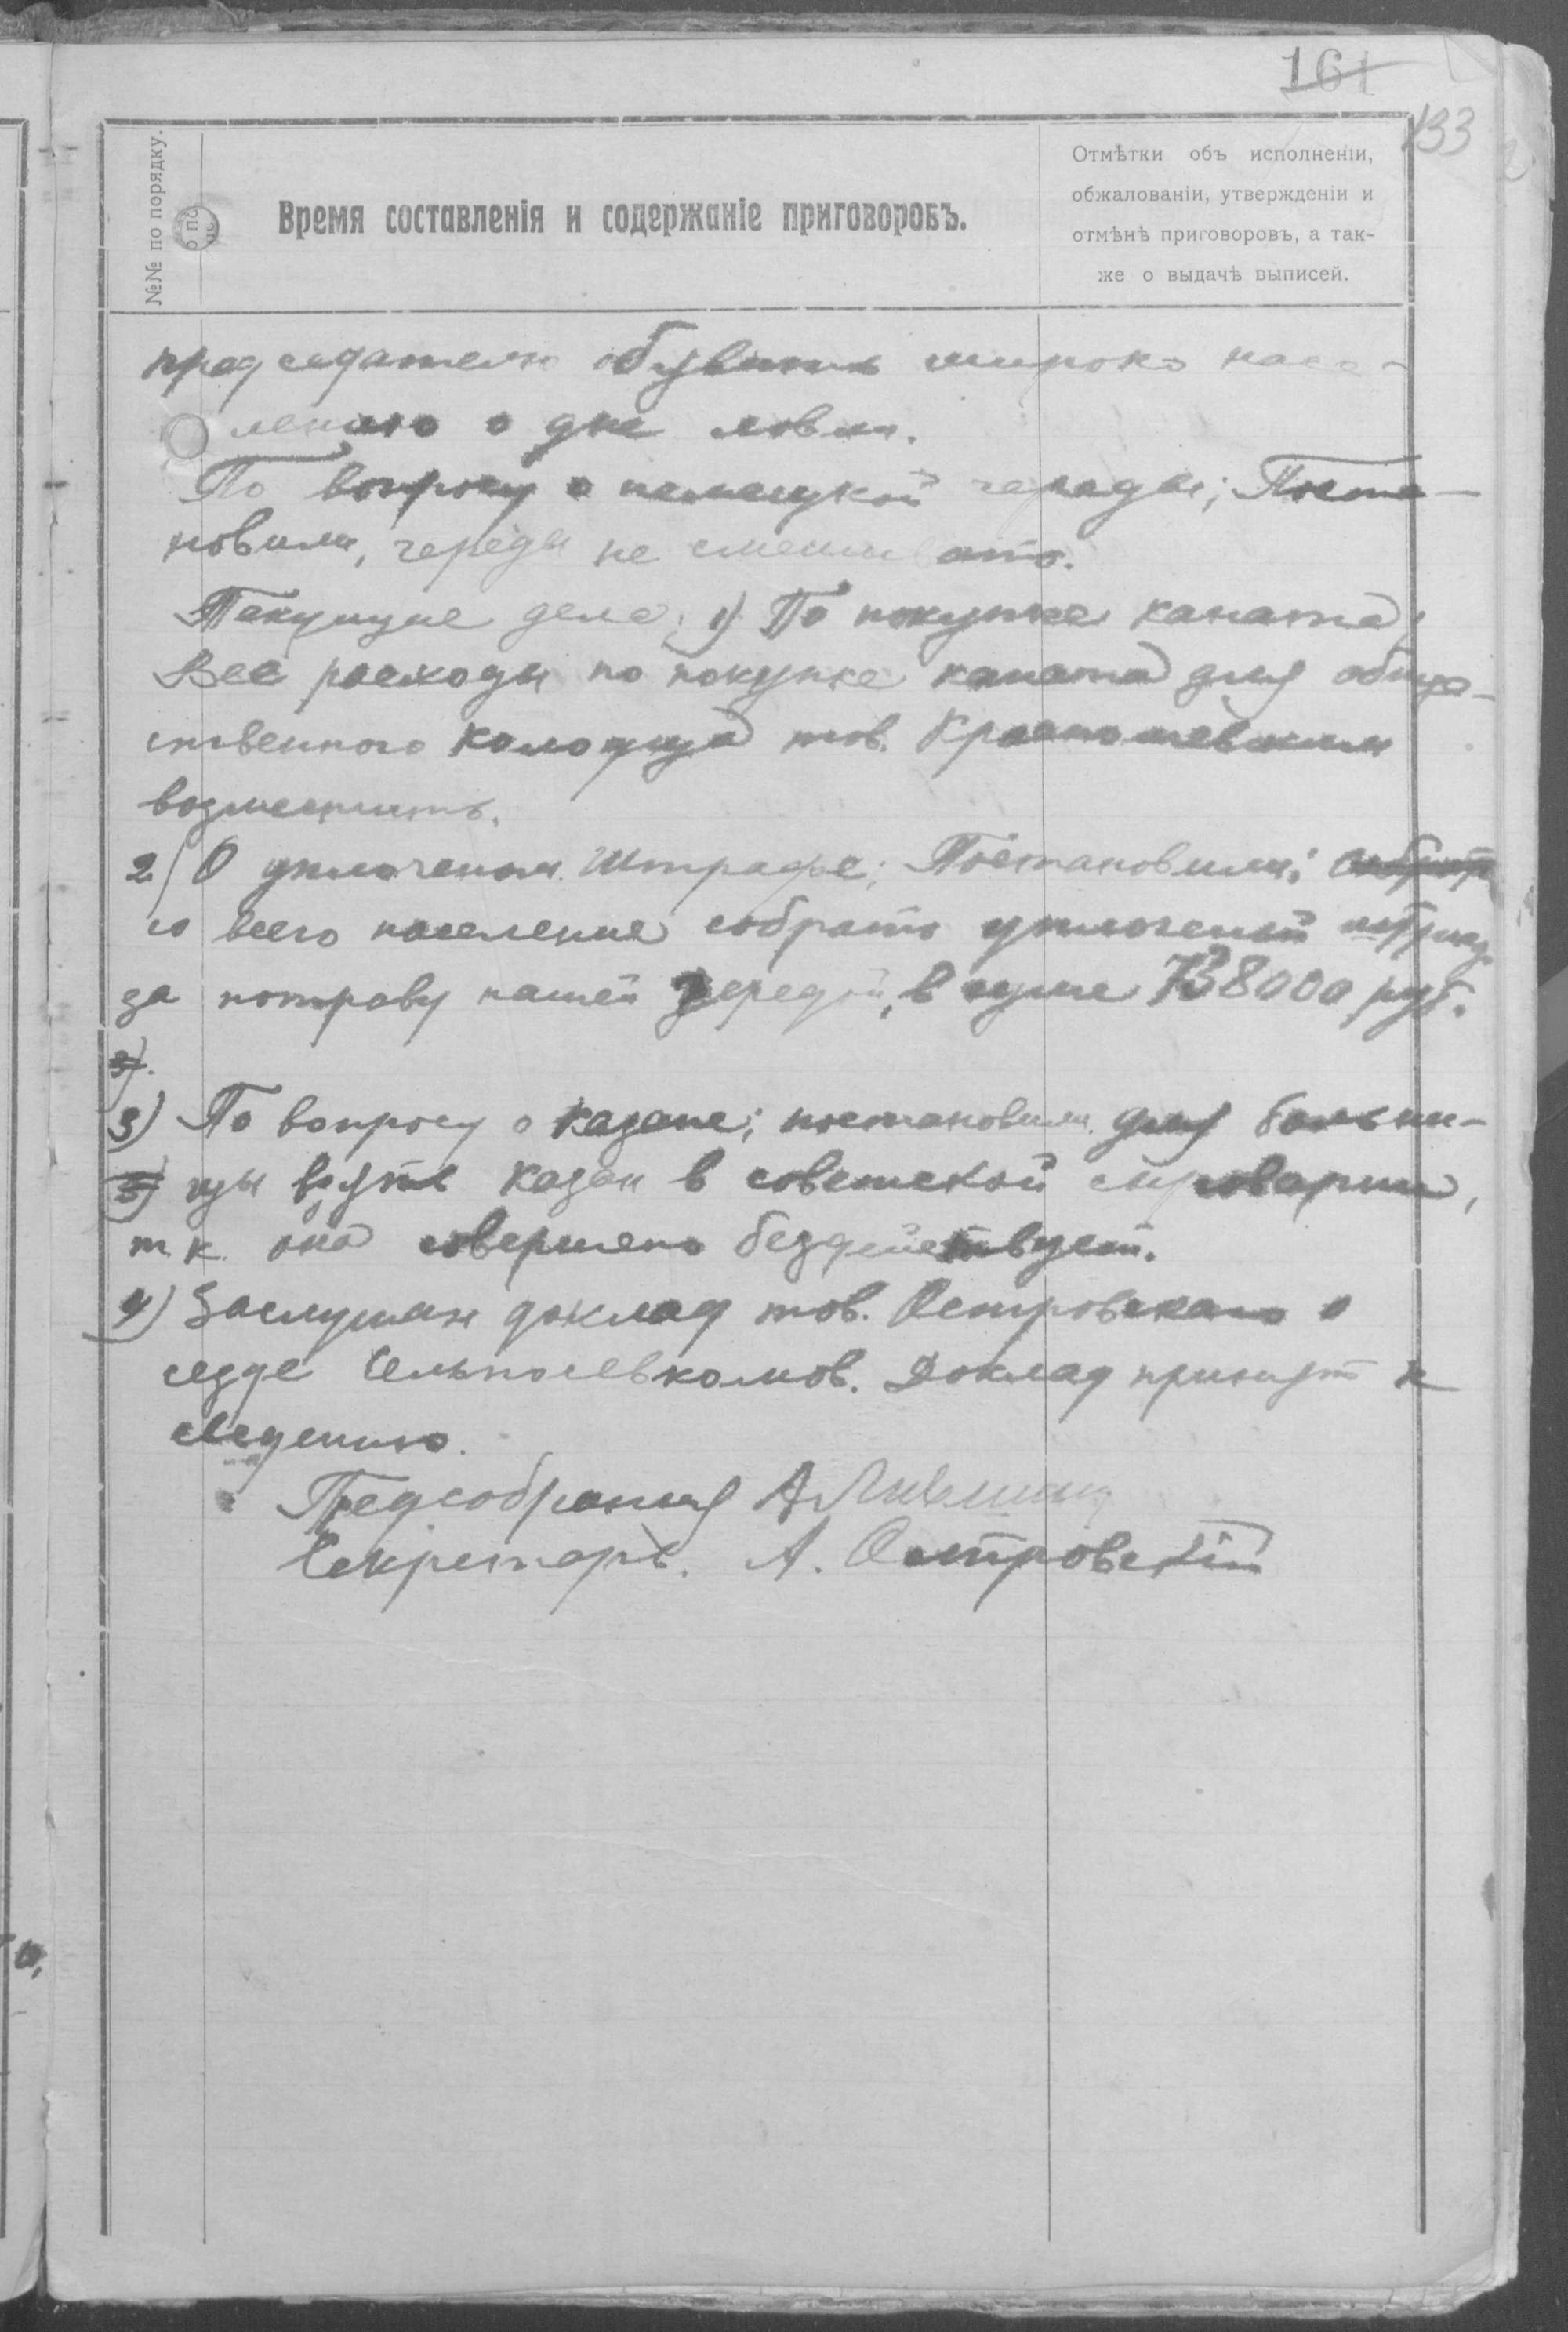 161
133
№№ по порядку.
Время составленія и содержаніе приговоровъ.
Отмѣтки объ исполненіи,
обжалованіи, утвержденіи и
отмѣнѣ приговоровъ, а так-
же о выдачѣ выписей.
председателю обувить широко насе-
лению о дне ловли.
По вопросу о немецкой череды; Поста-
новили, череды не смешивать.
Текущие дела; 1) По покупке каната;
Все расходы по покупке каната для обще-
ственного колодца тов.
возместить.
2) О уплаченом штрафе; Постановили:
со всего население собрать уплоченый штраф
за потраву нашей чередой, в суме 738000 руб.
3).
3) По вопросу о казане; постановили для больни-
3) цы взять казан в советской сыроварни,
т.к. она совершено бездействует.
4) Заслушан доклад тов. Островского о
сезде Сельпосевкомов. Доклад принят к
сведению.
Предсобрания А
Секретарь. А. Островскій